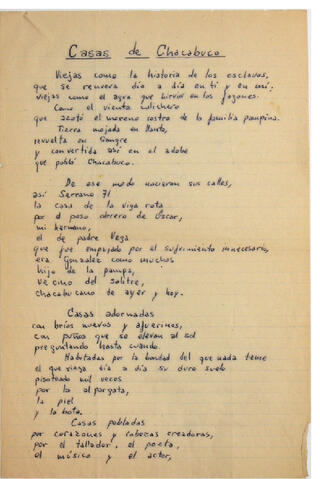 Casas de Chacabuco
Viejas como la historia de los esclavos,
que se renueva día a día en ti y en mí;
viejas como el agua que hirvió en los fogones.
Como el viento
que azotó el moreno rostro de la familia pampina.
Tierra mojada en llanto,
revuelta en sangre
y convertida así en el adobe
que pobló Chacabuco.
De ese modo nacieron sus calles,
así Serrano 71
la casa de la viga rota
por el peso obrero de Oscar,
mi hermano,
el de padre Vega
que fue empujado por el sufrimiento innecesario,
era González como muchos
hijo de la pampa,
vecino del salitre,
chacabucano de ayer y hoy.
Casas adornadas
con bríos nuevos y afuerinos,
con puños que se elevan al sol
preguntando hasta cuando.
Habitadas por la bondad del que nada teme
el que riega día a día su duro suelo
pisoteado mil veces
por la alpargata,
la piel
y la bota.
Casas pobladas
por corazones y cabezas creadoras,
por el tallador, el poeta,
el músico y el actor,